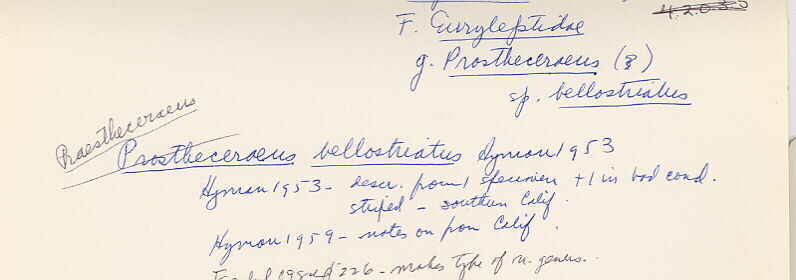 4.2.0.3.3
F. Euryleptidae
g. Prosthecraeus (8)
sp. bellostriatus
Praestheceraeus
Prostheceraeus bellostriatus Hyman 1953
Hyman 1953 - descr. from 1 specimen + 1 in bad cond.
striped - southern Calif.
Hyman 1959 - notes on from Calif.
226 - makes type of n. genus.